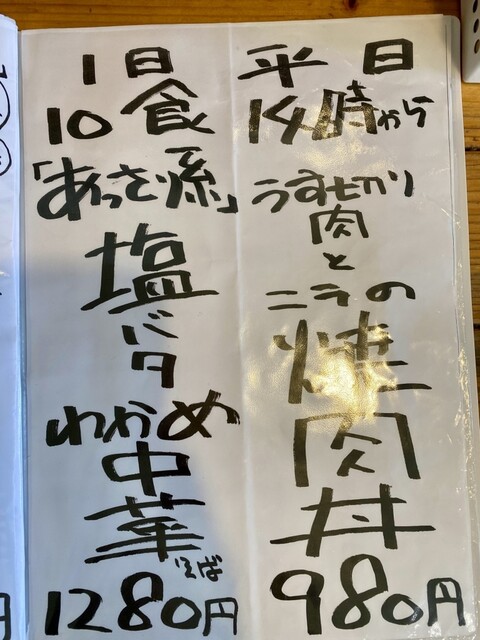 平日
14時から
うす切り
肉
と
ニラの
焼
肉
丼
980円
1日
10食
「あっさり系」
塩
バタ
わかめ
中
華
そば
1280円